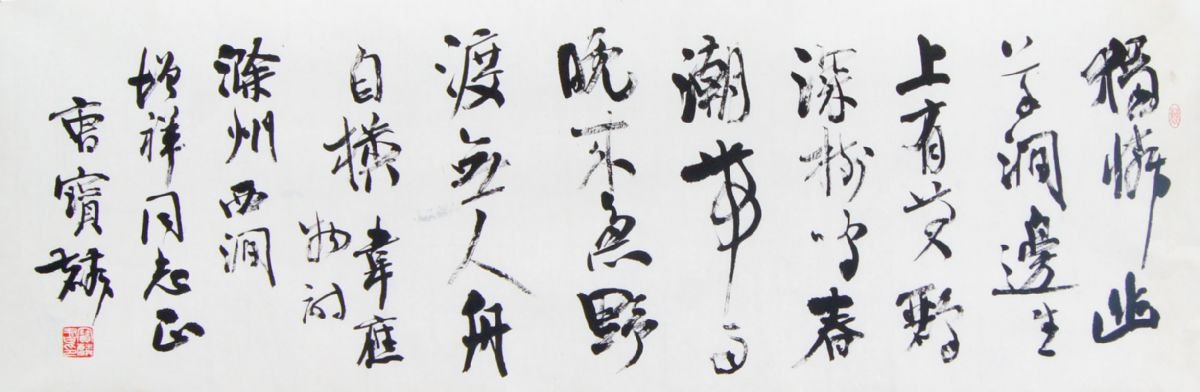 獨憐幽
草澗邊生
上有黄鸝
深樹鳴春
潮帶雨
晚来急野
渡無人舟
自横韋應
物詩
滁州西澗
增祥同志正
曹寶麟